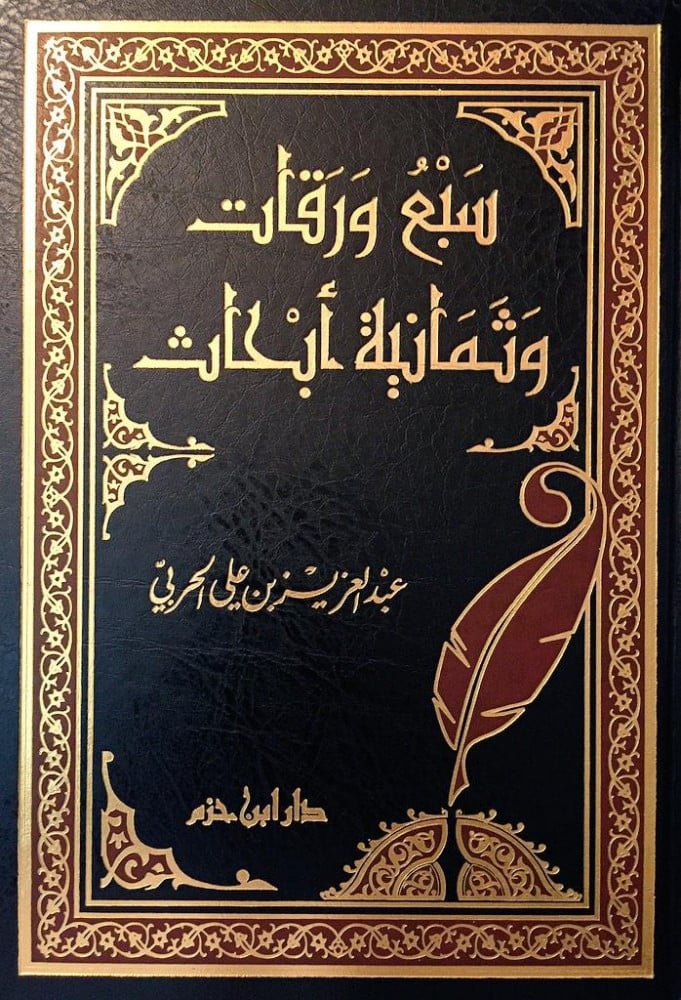 سَبْعُ وَرَقَات
وَثَمَانية أبْحَاث
عبْد العزيز بن علي الحربيّ
دار ابن حزم